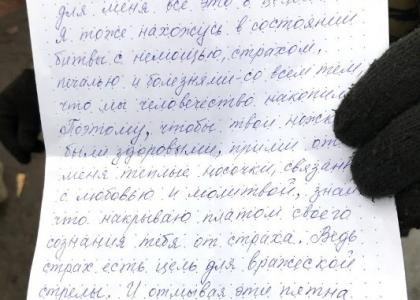 для меня все это о
я тоже нахожусь в состоянии
битвы с немощью, страхом,
печалью и болезнями-со всем тем,
что мы человечество накопили.
Поэтому, чтобы твои ножки
были здоровыми, прими от
меня теплые носочки, связан
с любовью и молитвой, знай
что накрываю платом своего
сознания тебя от страха. Ведь
страх есть цель для вражеской
стрелы. И отмывая эти пятна